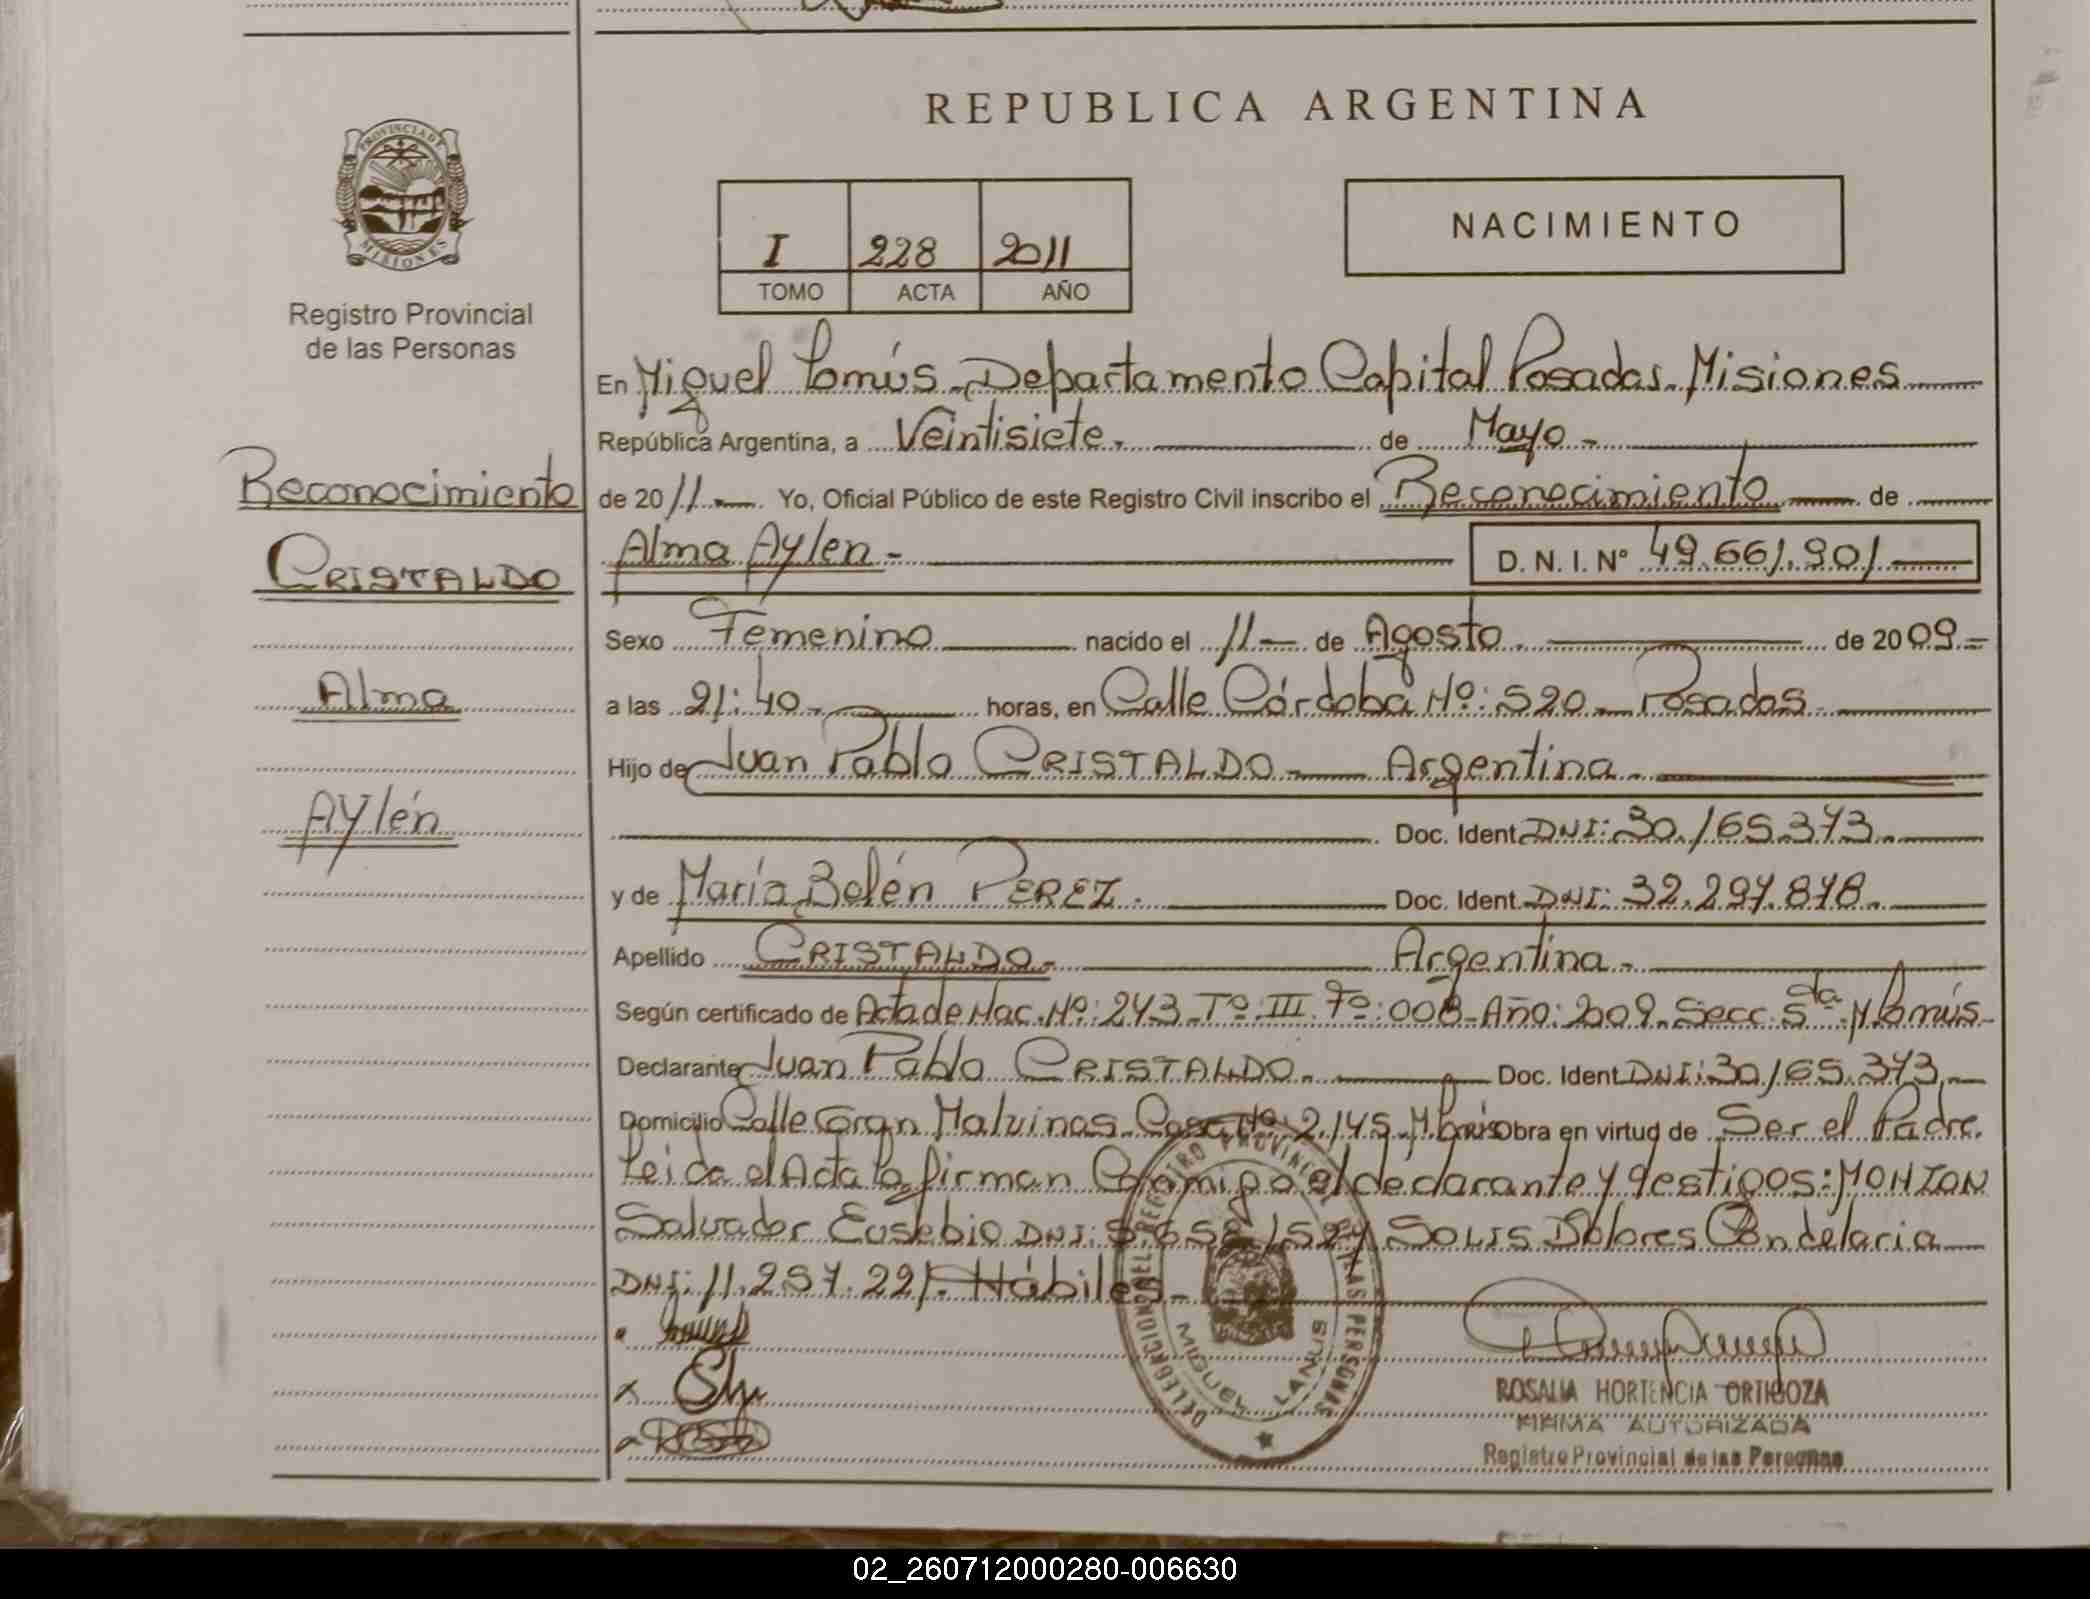 REPUBLICA ARGENTINA
PROVINCIA DE MISIONES
Registro Provincial
de las Personas
I 228 2011
TOMO ACTA AÑO
NACIMIENTO
En Miguel Lanús. Departamento Capital Posadas. Misiones
República Argentina, a Veintisiete. de Mayo
de 2011 Yo, Oficial Público de este Registro Civil inscribo el Reconocimiento de
Alma Aylen D. N. I. Nº 49.661.901
Reconocimiento
CRISTALDO
Alma
Aylén
Sexo Femenino nacido el 11 de Agosto de 2009
a las 21:40 horas, en Calle Córdoba Nº: 520 Posadas
Hijo de Juan Pablo CRISTALDO Argentina
Doc. Ident. DNI: 30.165.373
y de María Belén PEREZ. Doc. Ident. DNI: 32.297.878.
Apellido CRISTALDO Argentina
Según certificado de Acta de Nac. Nº: 243 Tº III Fº: 008 Año: 2009 Secc. 5ta M Lanús
Declarante Juan Pablo CRISTALDO. Doc. Ident DNI: 30.165.373
Domicilio Calle Gran Malvinas Casa Nº 2.145 M. Lanús Obra en virtud de Ser el Padre.
Leida el Acta la firman Conmigo el declarante y testigos: MONZON
Salvador Eusebio DNI: SOLIS Dolores Candelaria
DNI: 11.257.221. Hábiles
DELEGACION DEL REGISTRO PROVINCIAL DE LAS PERSONAS
MIGUEL LANUS
ROSALIA HORTENCIA ORTIGOZA
FIRMA AUTORIZADA
Registro Provincial de las Personas
02_260712000280-006630